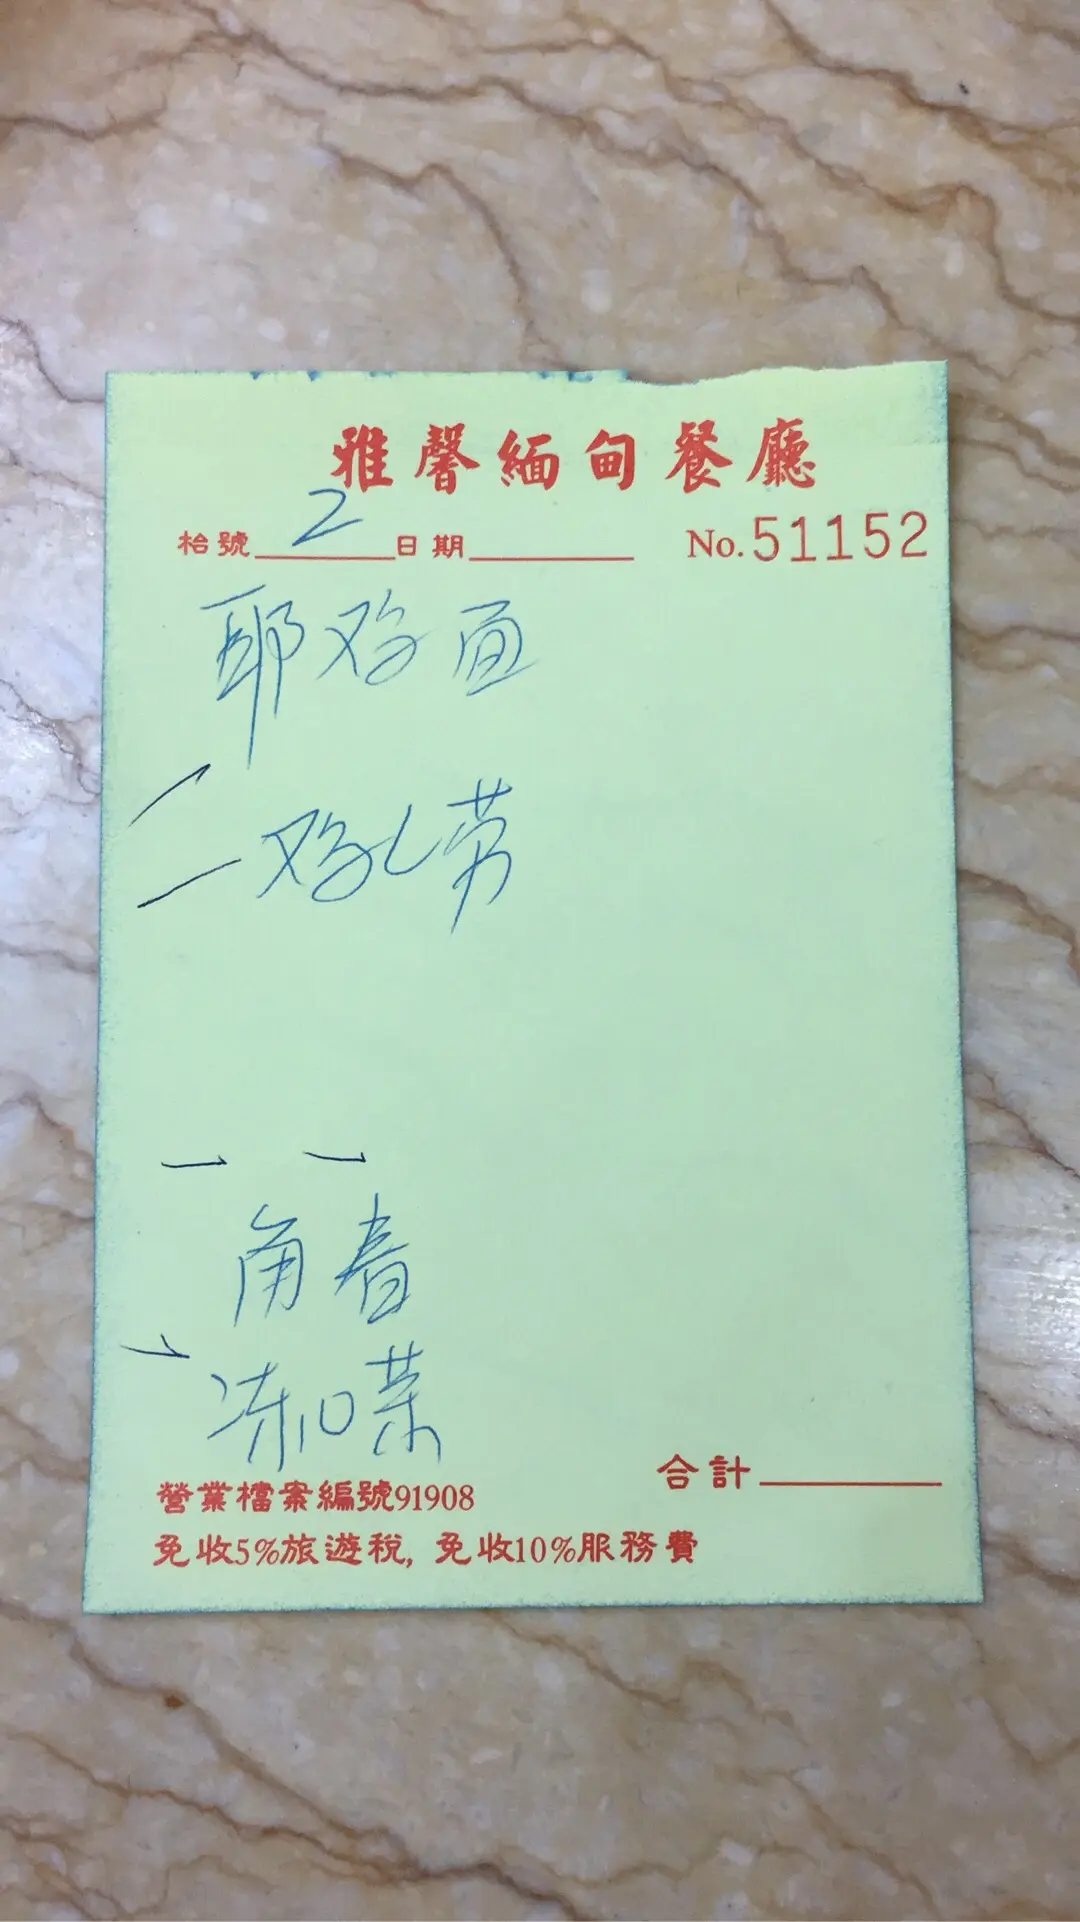 雅馨緬甸餐廳
枱號 2 日期 No. 51152
耶鸡面
鸡扎劳
角 春
冻加菜
合計
營業檔案編號91908
免收5%旅遊税, 免收10%服務費